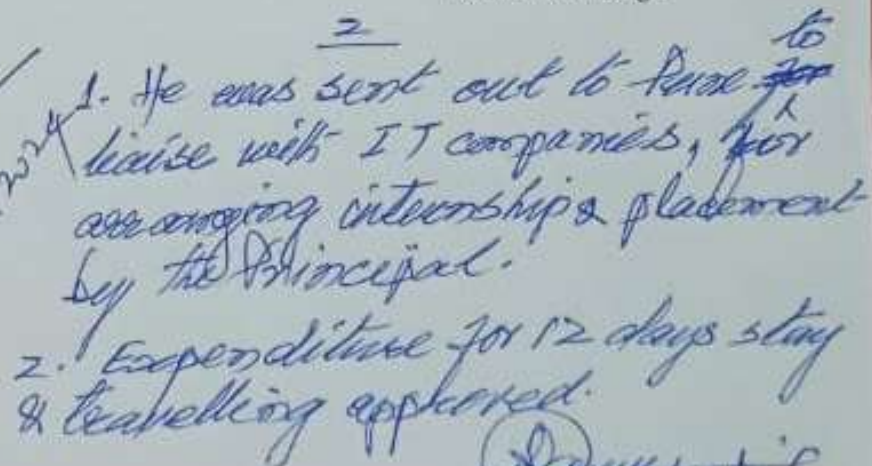 2
to
1. He was sent out to Pune for
liaise with IT companies, for
arranging internship & placement
by the Principal.
2. Expenditure for 12 days stay
& travelling approved.
2024